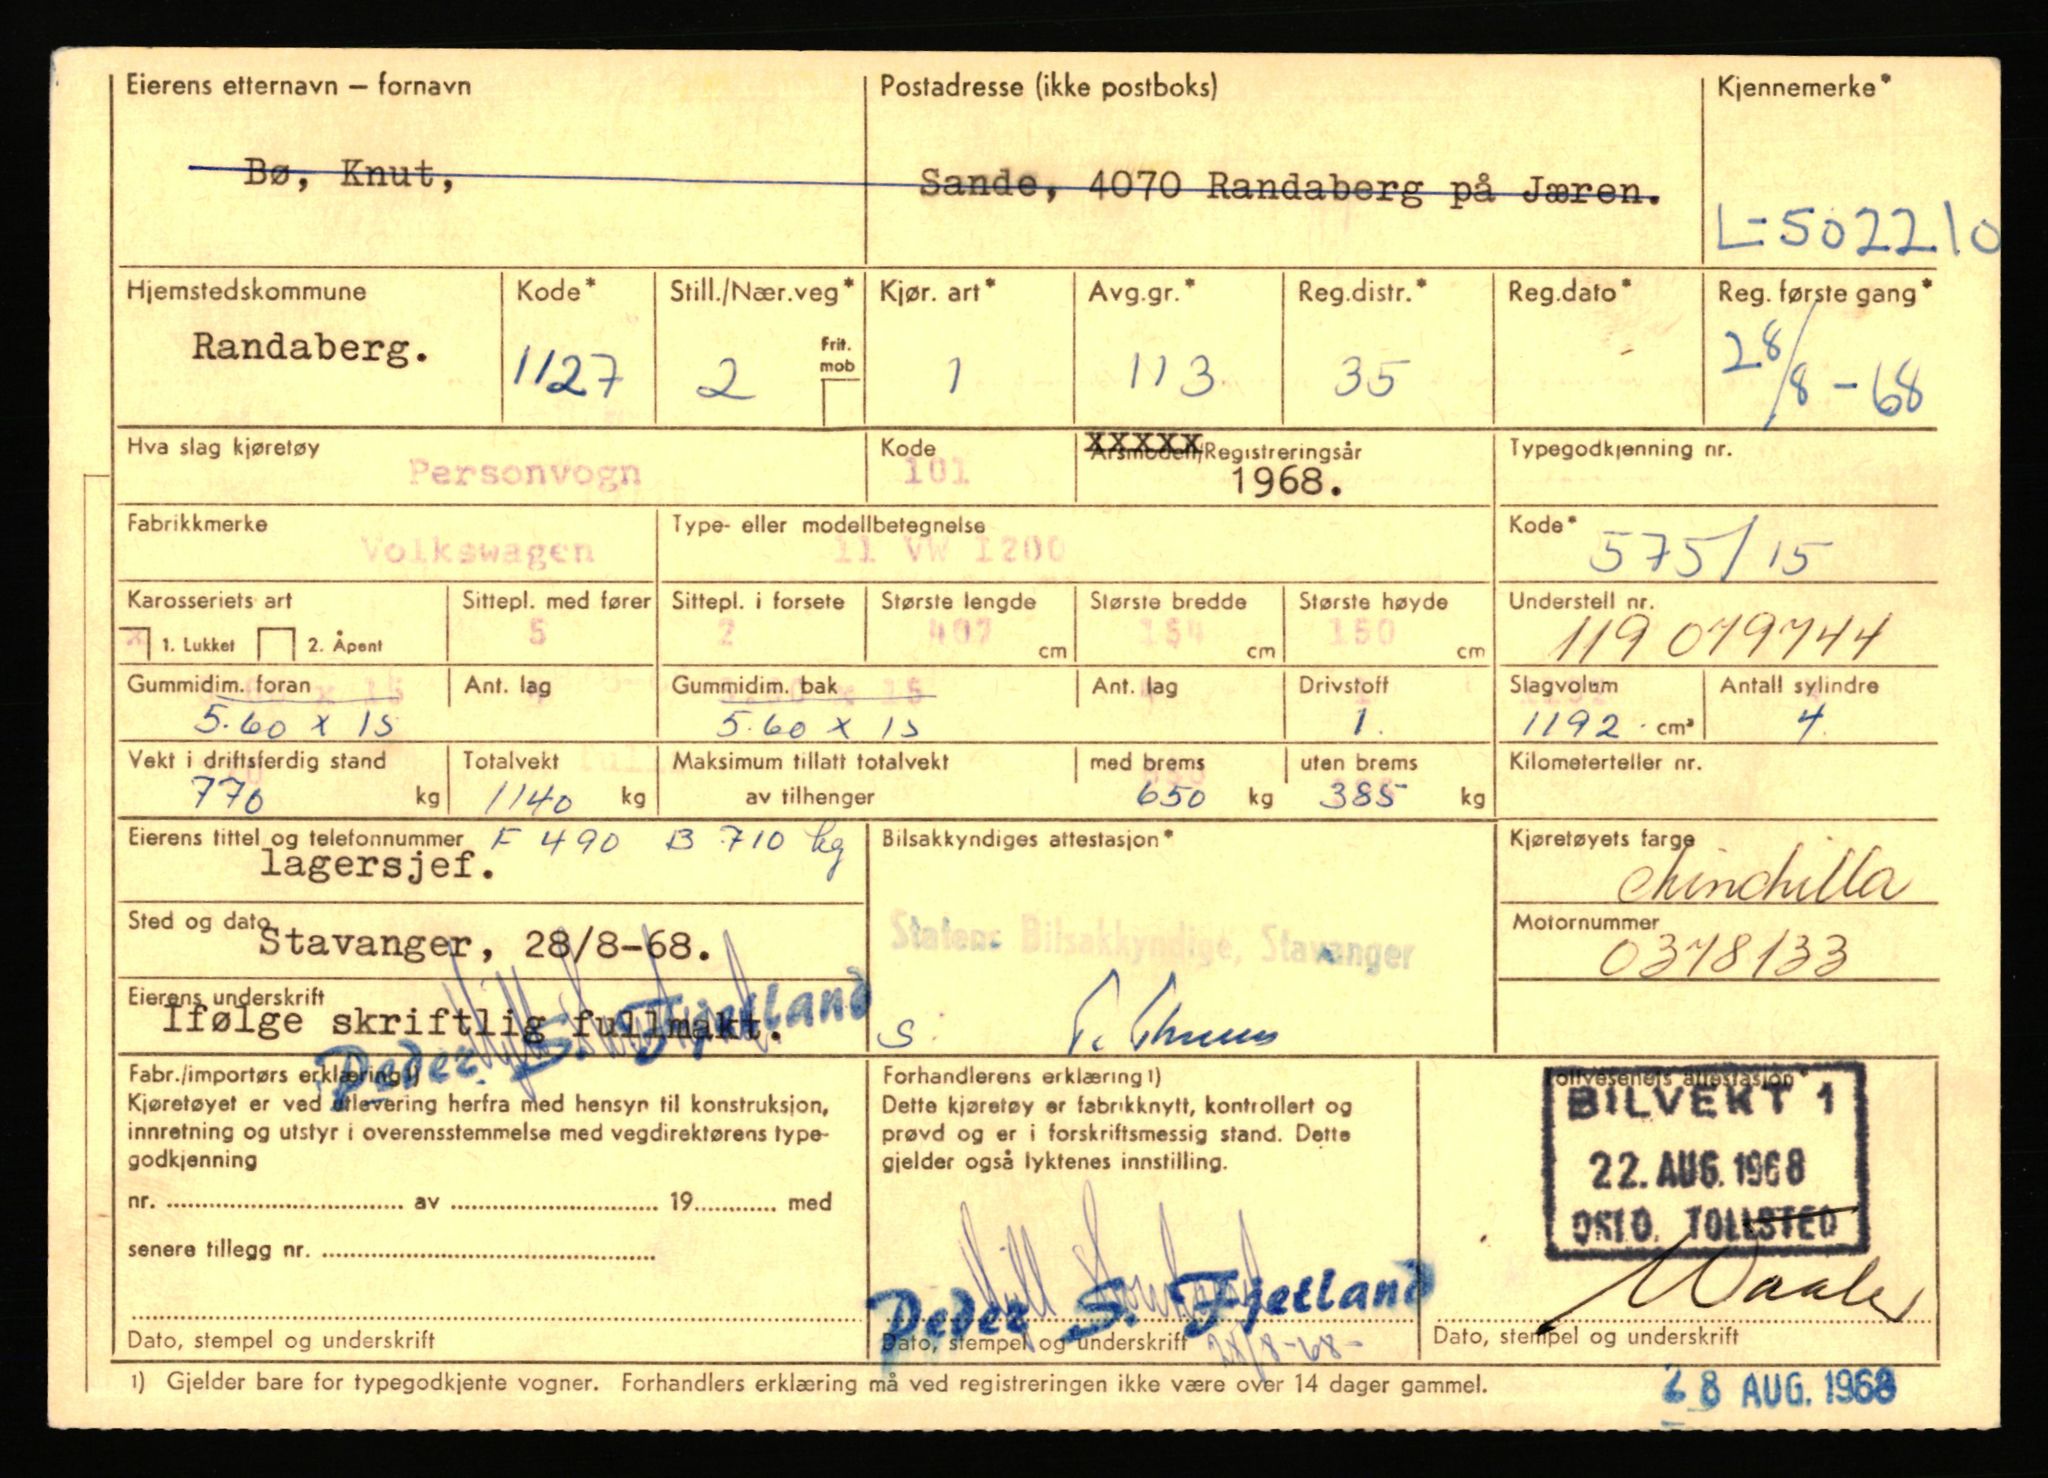 Eierens etternavn – fornavn
Postadresse (ikke postboks)
Kjennemerke*
Bø, Knut,
Sande, 4070 Randaberg på Jæren.
L-502210
Hjemstedskommune
Kode*
Still./Nær.veg*
Kjør. art*
Avg.gr.*
Reg.distr.*
Reg.dato*
Reg. første gang*
Randaberg.
1127
2
Frit. mob
1
113
35
28/8-68
Hva slag kjøretøy
Kode
xxxxx
Årsmodell/Registreringsår
Typegodkjenning nr.
Personvogn
101
1968.
Fabrikkmerke
Type- eller modellbetegnelse
Kode*
Volkswagen
11 VW 1200
575/15
Karosseriets art
Sittepl. med fører
Sittepl. i forsete
Største lengde
Største bredde
Største høyde
Understell nr.
x 1. Lukket
2. Åpent
5
2
407 cm
154 cm
150 cm
119 079744
Gummidim. foran
Ant. lag
Gummidim. bak
Ant. lag
Drivstoff
Slagvolum
Antall sylindre
5.60 x 15
5.60 x 15
1.
1192 cm³
4
Vekt i driftsferdig stand
Totalvekt
Maksimum tillatt totalvekt
med brems
uten brems
Kilometerteller nr.
770 kg
1140 kg
av tilhenger
650 kg
385 kg
Eierens tittel og telefonnummer
F 490 B 710 kg
Bilsakkyndiges attestasjon*
Kjøretøyets farge
lagersjef.
chinchilla
Sted og dato
Stavanger, 28/8-68.
Statens Bilsakkyndige, Stavanger
Motornummer
0378133
Eierens underskrift
Ifølge skriftlig fullmakt.
Peder S. Fjetland
S.
Fabr./importørs erklæring 1)
Kjøretøyet er ved utlevering herfra med hensyn til konstruksjon,
innretning og utstyr i overensstemmelse med vegdirektørens type-
godkjenning
nr. av 19 med
senere tillegg nr.
Dato, stempel og underskrift
Forhandlerens erklæring 1)
Dette kjøretøy er fabrikknytt, kontrollert og
prøvd og er i forskriftsmessig stand. Dette
gjelder også lyktenes innstilling.
Peder S. Fjetland
Dato, stempel og underskrift
28/8-68-
Tollvesenets attestasjon*
BILVEKT 1
22. AUG. 1968
OSLO TOLLSTED
Waaler
Dato, stempel og underskrift
1) Gjelder bare for typegodkjente vogner. Forhandlers erklæring må ved registreringen ikke være over 14 dager gammel.
28 AUG. 1968